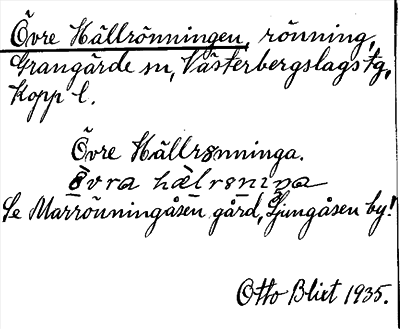 Övre Hällrönningen, rönning,
Grangärde sn, Västerbergslags tg,
Kopp. l.
Övre Hällrönninga.
Se Marrönningåsen gård, Ljungåsen by!
Otto Blixt 1935.